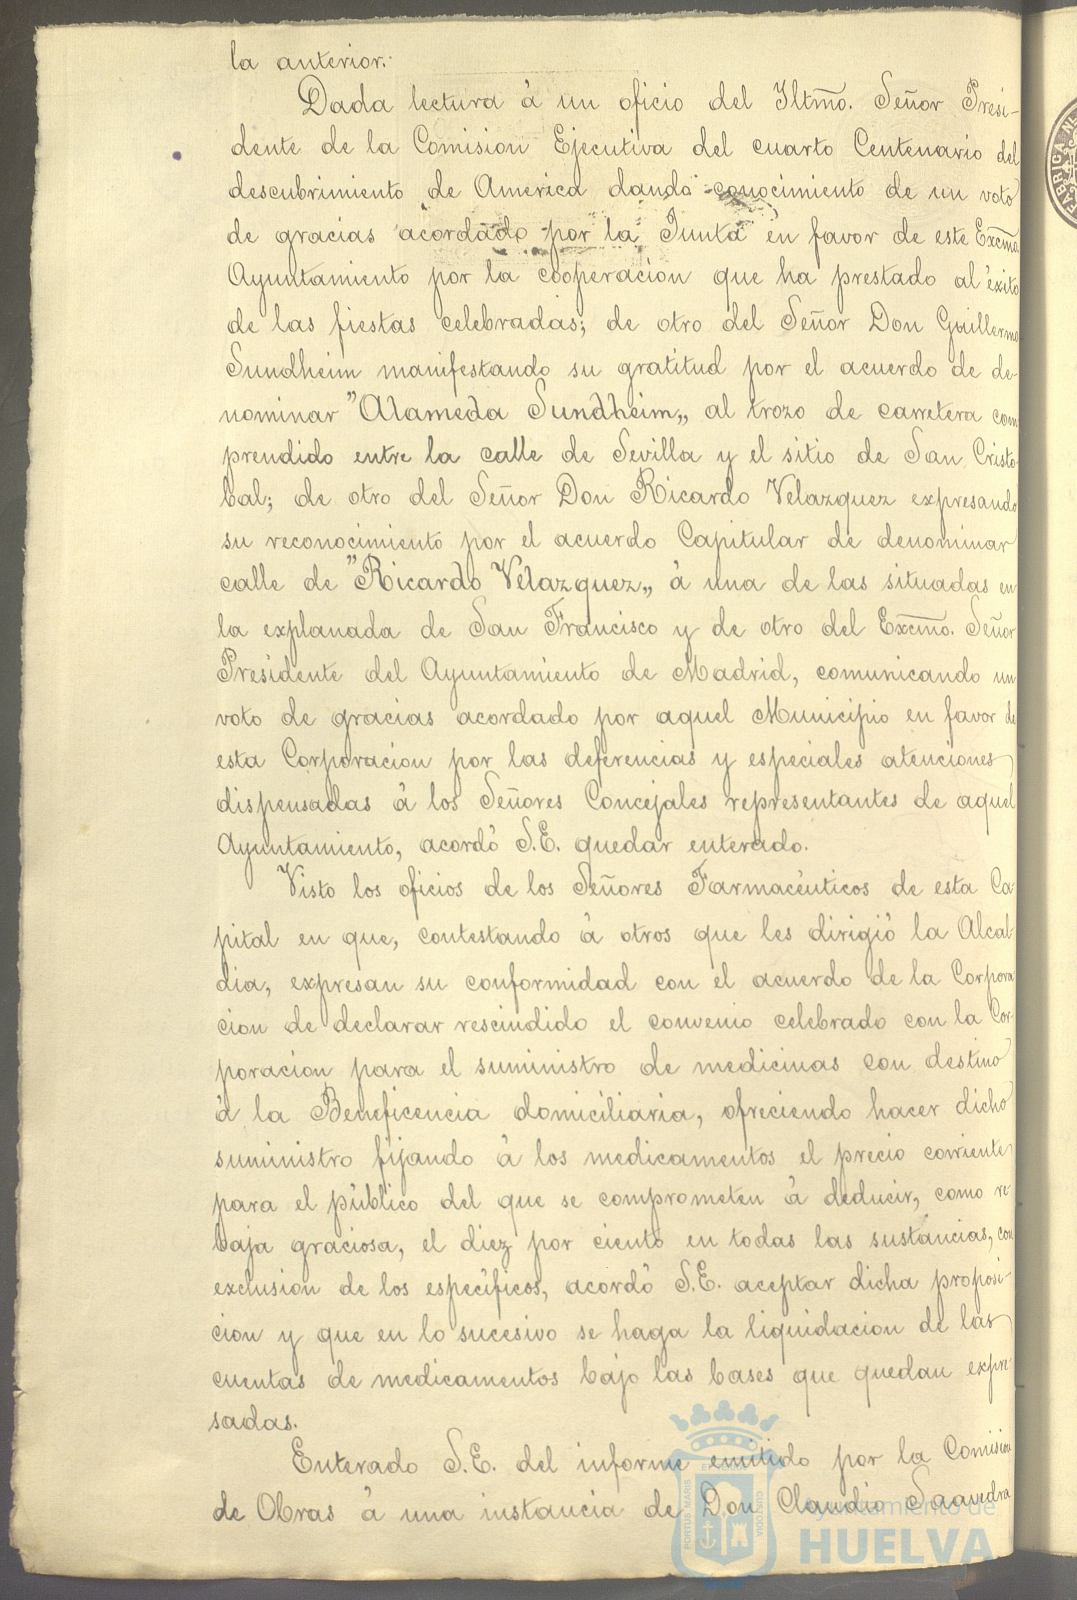 la anterior.
Dada lectura á un oficio del Iltmo. Señor Presi-
dente de la Comision Ejecutiva del cuarto Centenario del
descubrimiento de America dando conocimiento de un voto
de gracias acordado por la Junta en favor de este Excmo.
Ayuntamiento por la cooperacion que ha prestado al éxito
de las fiestas celebradas; de otro del Señor Don Guillermo
Sundheim manifestando su gratitud por el acuerdo de de-
nominar "Alameda Sundheim„ al trozo de carretera com
prendido entre la calle de Sevilla y el sitio de San Cristo
bal; de otro del Señor Don Ricardo Velazquez expresando
su reconocimiento por el acuerdo Capitular de denominar
calle de "Ricardo Velazquez„ á una de las situadas en
la explanada de San Francisco y de otro del Excmo. Señor
Presidente del Ayuntamiento de Madrid, comunicando un
voto de gracias acordado por aquel Municipio en favor de
esta Corporacion por las deferencias y especiales atenciones
dispensadas á los Señores Concejales representantes de aquel
Ayuntamiento, acordó S.E. quedar enterado.
Visto los oficios de los Señores Farmacéuticos de esta Ca-
pital en que, contestando á otros que les dirigió la Alcal
dia, expresan su conformidad con el acuerdo de la Corpora
cion de declarar rescindido el convenio celebrado con la Cor-
poracion para el suministro de medicinas con destino
á la Beneficencia domiciliaria, ofreciendo hacer dicho
suministro fijando á los medicamentos el precio corriente
para el público del que se comprometen á deducir, como re
baja graciosa, el diez por ciento en todas las sustancias, con
exclusion de los específicos, acordó S.E. aceptar dicha proposi-
cion y que en lo sucesivo se haga la liquidacion de las
cuentas de medicamentos bajo las bases que quedan expre-
sadas.
Enterado S.E. del informe emitido por la Comision
de Obras á una instancia de Don Claudio Saavedra
Ayuntamiento de
HUELVA
PORTUS MARIS ET TERRAE CUSTODIA